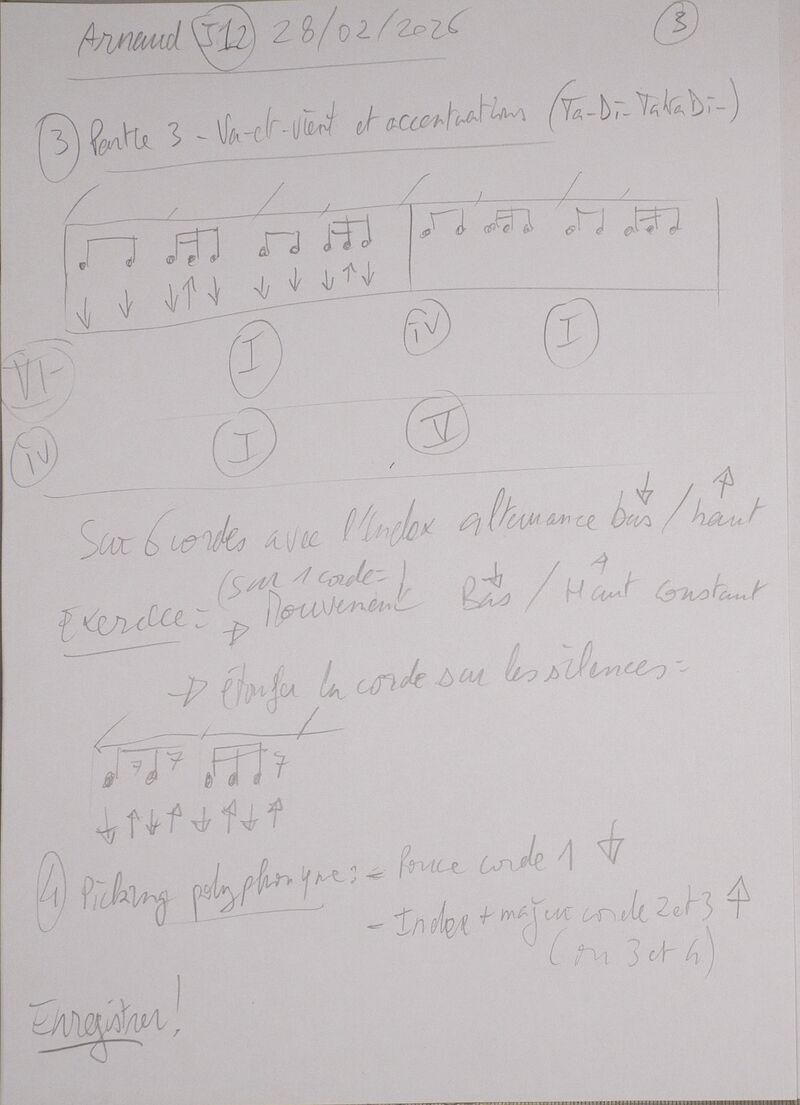 Arnaud J12 28/02/2026
3
3 Partie 3 - Va-et-vient et accentuations (Ta-Di- TakaDi-)
I iv I
VI-
iv I V
Sur 6 cordes avec l'Index alternance bas ↓ / haut ↑
(sur 1 corde=)
Exercice: → Mouvement Bas ↓ / Haut ↑ constant
→ étouffer la corde sur les silences=
↓ ↑ ↓ ↑ ↓ ↑ ↓ ↑
4 Picking polyphonique: - Pouce corde 1 ↓
- Index + majeur corde 2 et 3 ↑
(ou 3 et 4)
Enregistrer!